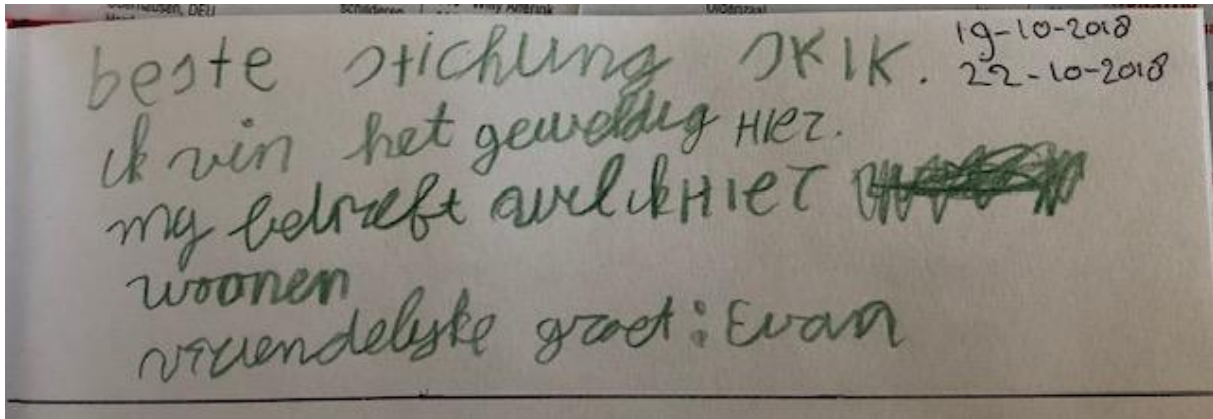 beste stichung SKIK. 19-10-2018
22-10-2018
ik vin het geweldig HIER.
my betreft wil ik HIER
woonen
vriendelyke groet: Evan